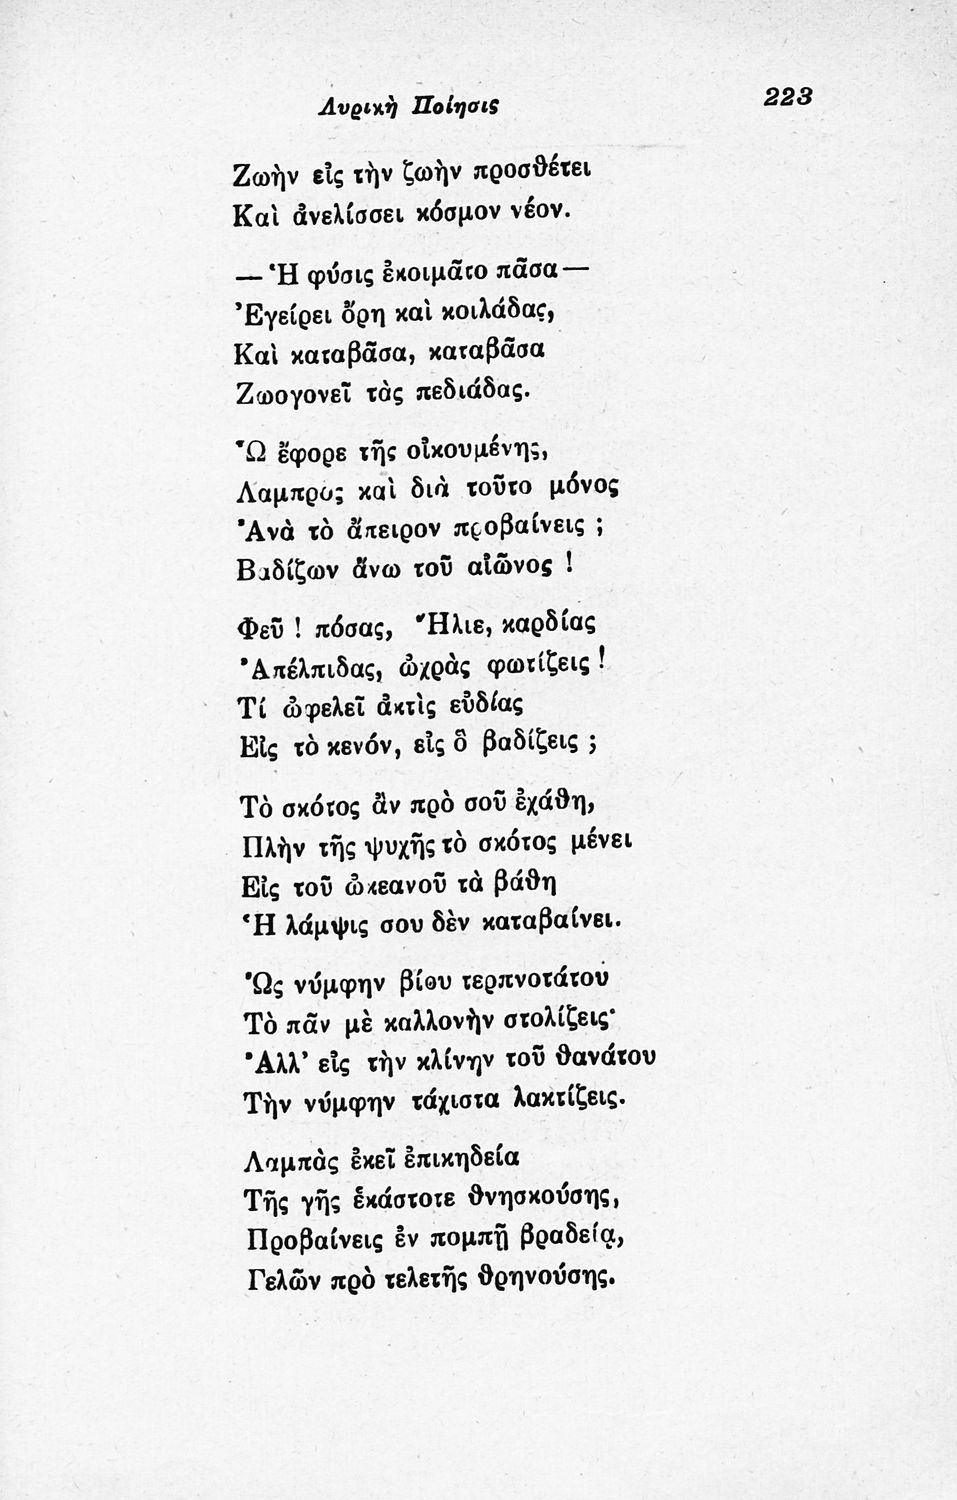 Λυρικὴ Ποίησις
223
Ζωὴν εἰς τὴν ζωὴν προσθέτει
Καὶ ἀνελίσσει κόσμον νέον.
— Ἡ φύσις ἐκοιμᾶτο πᾶσα —
Ἐγείρει ὄρη καὶ κοιλάδας,
Καὶ καταβᾶσα, καταβᾶσα
Ζωογονεῖ τὰς πεδιάδας.
Ὦ ἔφορε τῆς οἰκουμένης,
Λαμπρὸς καὶ διὰ τοῦτο μόνος
Ἀνὰ τὸ ἄπειρον προβαίνεις ;
Βαδίζων ἄνω τοῦ αἰῶνος !
Φεῦ ! πόσας, Ἥλιε, καρδίας
Ἀπέλπιδας, ὠχρὰς φωτίζεις !
Τί ὠφελεῖ ἀκτὶς εὐδίας
Εἰς τὸ κενόν, εἰς ὃ βαδίζεις ;
Τὸ σκότος ἂν πρὸ σοῦ ἐχάθη,
Πλὴν τῆς ψυχῆς τὸ σκότος μένει
Εἰς τοῦ ὠκεανοῦ τὰ βάθη
Ἡ λάμψις σου δὲν καταβαίνει.
Ὡς νύμφην βίου τερπνοτάτου
Τὸ πᾶν μὲ καλλονὴν στολίζεις·
Ἀλλ’ εἰς τὴν κλίνην τοῦ θανάτου
Τὴν νύμφην τάχιστα λακτίζεις.
Λαμπὰς ἐκεῖ ἐπικηδεία
Τῆς γῆς ἑκάστοτε θνησκούσης,
Προβαίνεις ἐν πομπῇ βραδείᾳ,
Γελῶν πρὸ τελετῆς θρηνούσης.